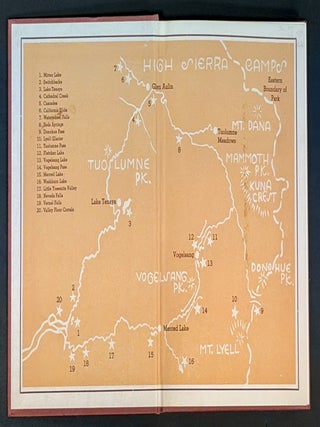 HIGH SIERRA CAMPS
1. Mirror Lake
2. Switchbacks
3. Lake Tenaya
4. Cathedral Creek
5. Cascades
6. California Slide
7. Waterwheel Falls
8. Soda Springs
9. Donohue Pass
10. Lyell Glacier
11. Tuolumne Pass
12. Fletcher Lake
13. Vogelsang Lake
14. Vogelsang Pass
15. Merced Lake
16. Washburn Lake
17. Little Yosemite Valley
18. Nevada Falls
19. Vernal Falls
20. Valley Floor Corrals
7
6
Glen Aulin
5
4
Eastern
Boundary of
Park
MT. DANA
Tuolumne
Meadows
8
MAMMOTH
PK.
KUNA
CREST
TUOLUMNE
PK.
Lake Tenaya
3
12
11
Vogelsang
13
VOGELSANG
PK.
DONOHUE
PK.
2
20
1
14
10
9
Merced Lake
MT. LYELL
19
18
17
15
16